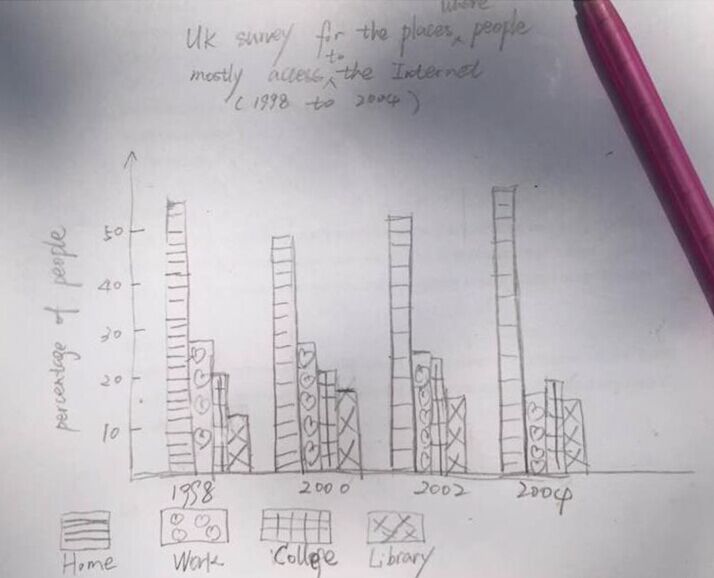 where
UK survey for the places people
to
mostly access the Internet
(1998 to 2004)
percentage of people
50
40
30
20
10
1998 2000 2002 2004
Home Work College Library